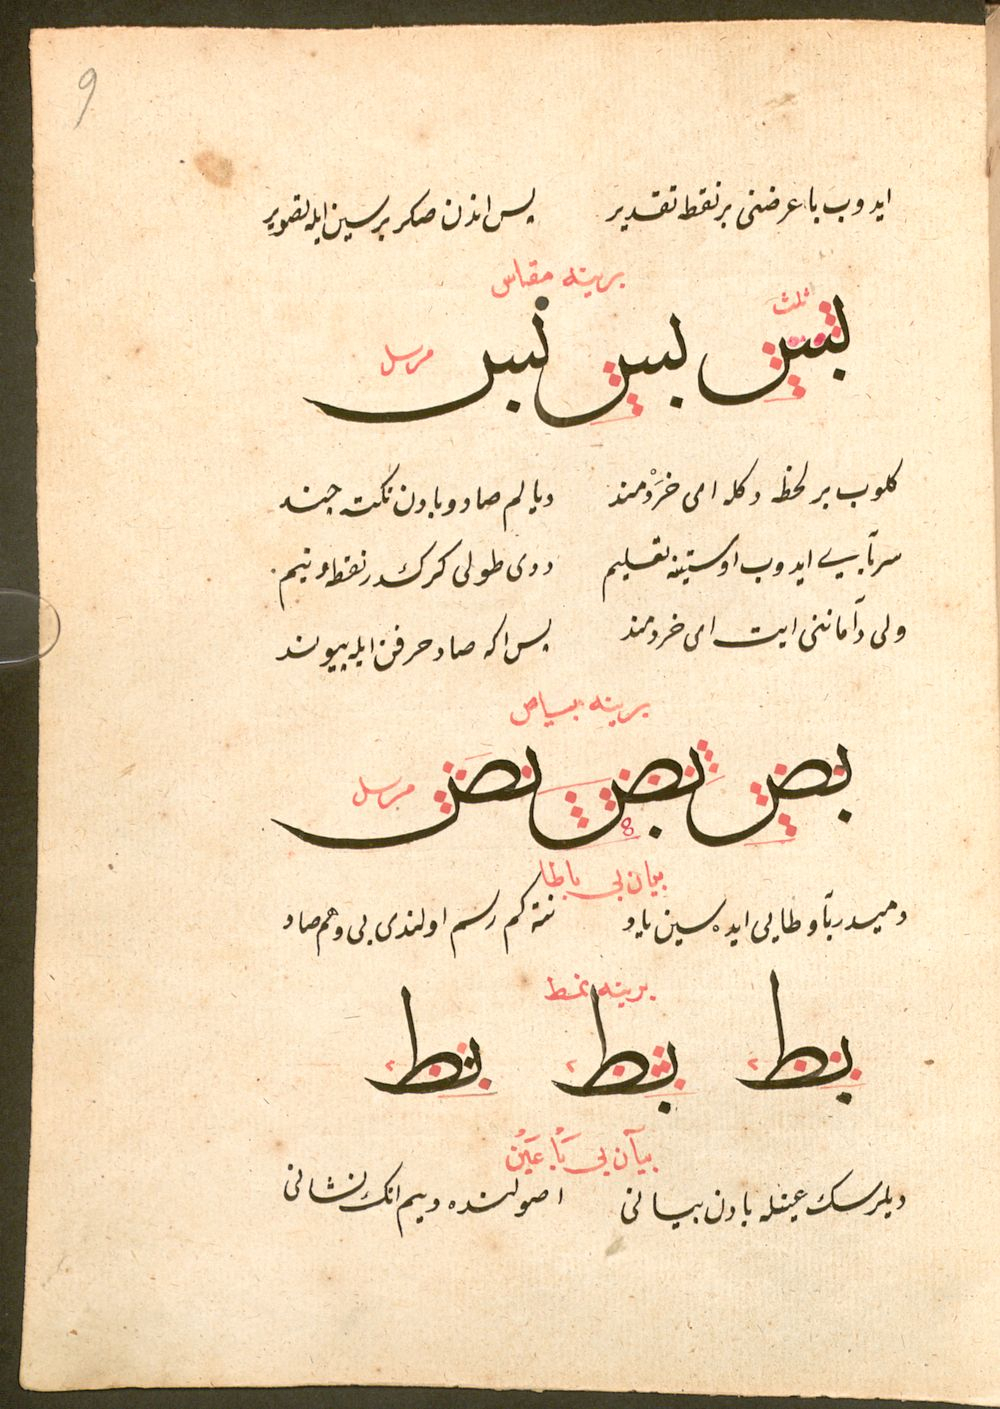 9
ایدوب با عرضنی بر نقطه تقدیر پس اندن صکر بر سین ایله تصویر
برینه مقاس
ثلث
بس بس بس
مرسل
کلوب بر لحظه دکله ای خردمند دیالم صاد و بادن نکته چند
ایدوب اوستینه تقلیم ددی طولی کرکدر نقطه و نیم
ولی ایت ای خردمند پس اکه صاد حرفن ایله پیوند
برینه بیاص
بص بص بص
مرسل
بیان بی با طا
دمیسدر با و طایی ایده سین یاد نته کم رسم اولندی بی و هم صاد
برینه نمط
بط بط بط
بیان بی با عین
دیلرسک عینله بادن بیانی اصولنده دییم انک نشانی